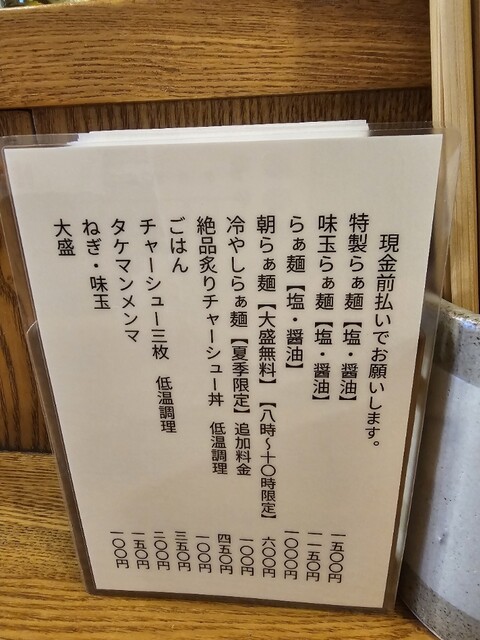 現金前払いでお願いします。
特製らぁ麺【塩・醤油】 一五〇〇円
味玉らぁ麺【塩・醤油】 一一五〇円
らぁ麺【塩・醤油】 一〇〇〇円
朝らぁ麺【大盛無料】【八時～十〇時限定】 六〇〇円
冷やしらぁ麺【夏季限定】追加料金 一〇〇円
絶品炙りチャーシュー丼 低温調理 四五〇円
ごはん 一〇〇円
チャーシュー三枚 低温調理 三五〇円
タケマンメンマ 二〇〇円
ねぎ・味玉 一五〇円
大盛 一〇〇円